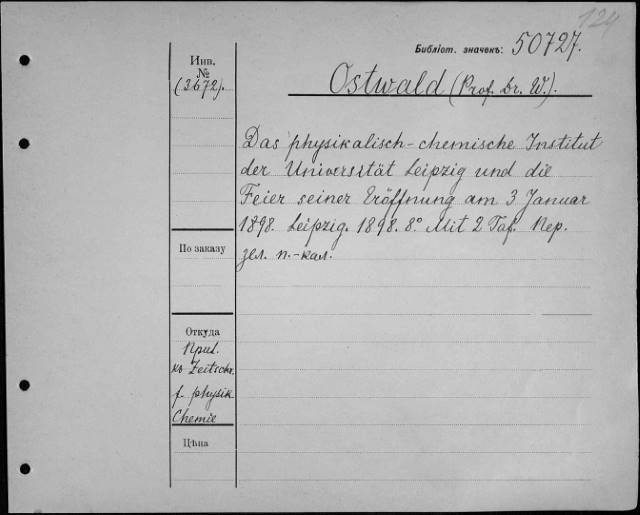 124
Библіот. значекъ: 50727.
Инв.
№
(3672).
Ostwald (Prof. Dr. W.).
Das physikalisch-chemische Institut
der Universität Leipzig und die
Feier seiner Eröffnung am 3 Januar
1898. Leipzig. 1898. 8°. Mit 2 Taf. Пер.
зел. п.-кал.
По заказу
Откуда
Прил.
къ Zeitschr.
f. physik
Chemie
Цѣна